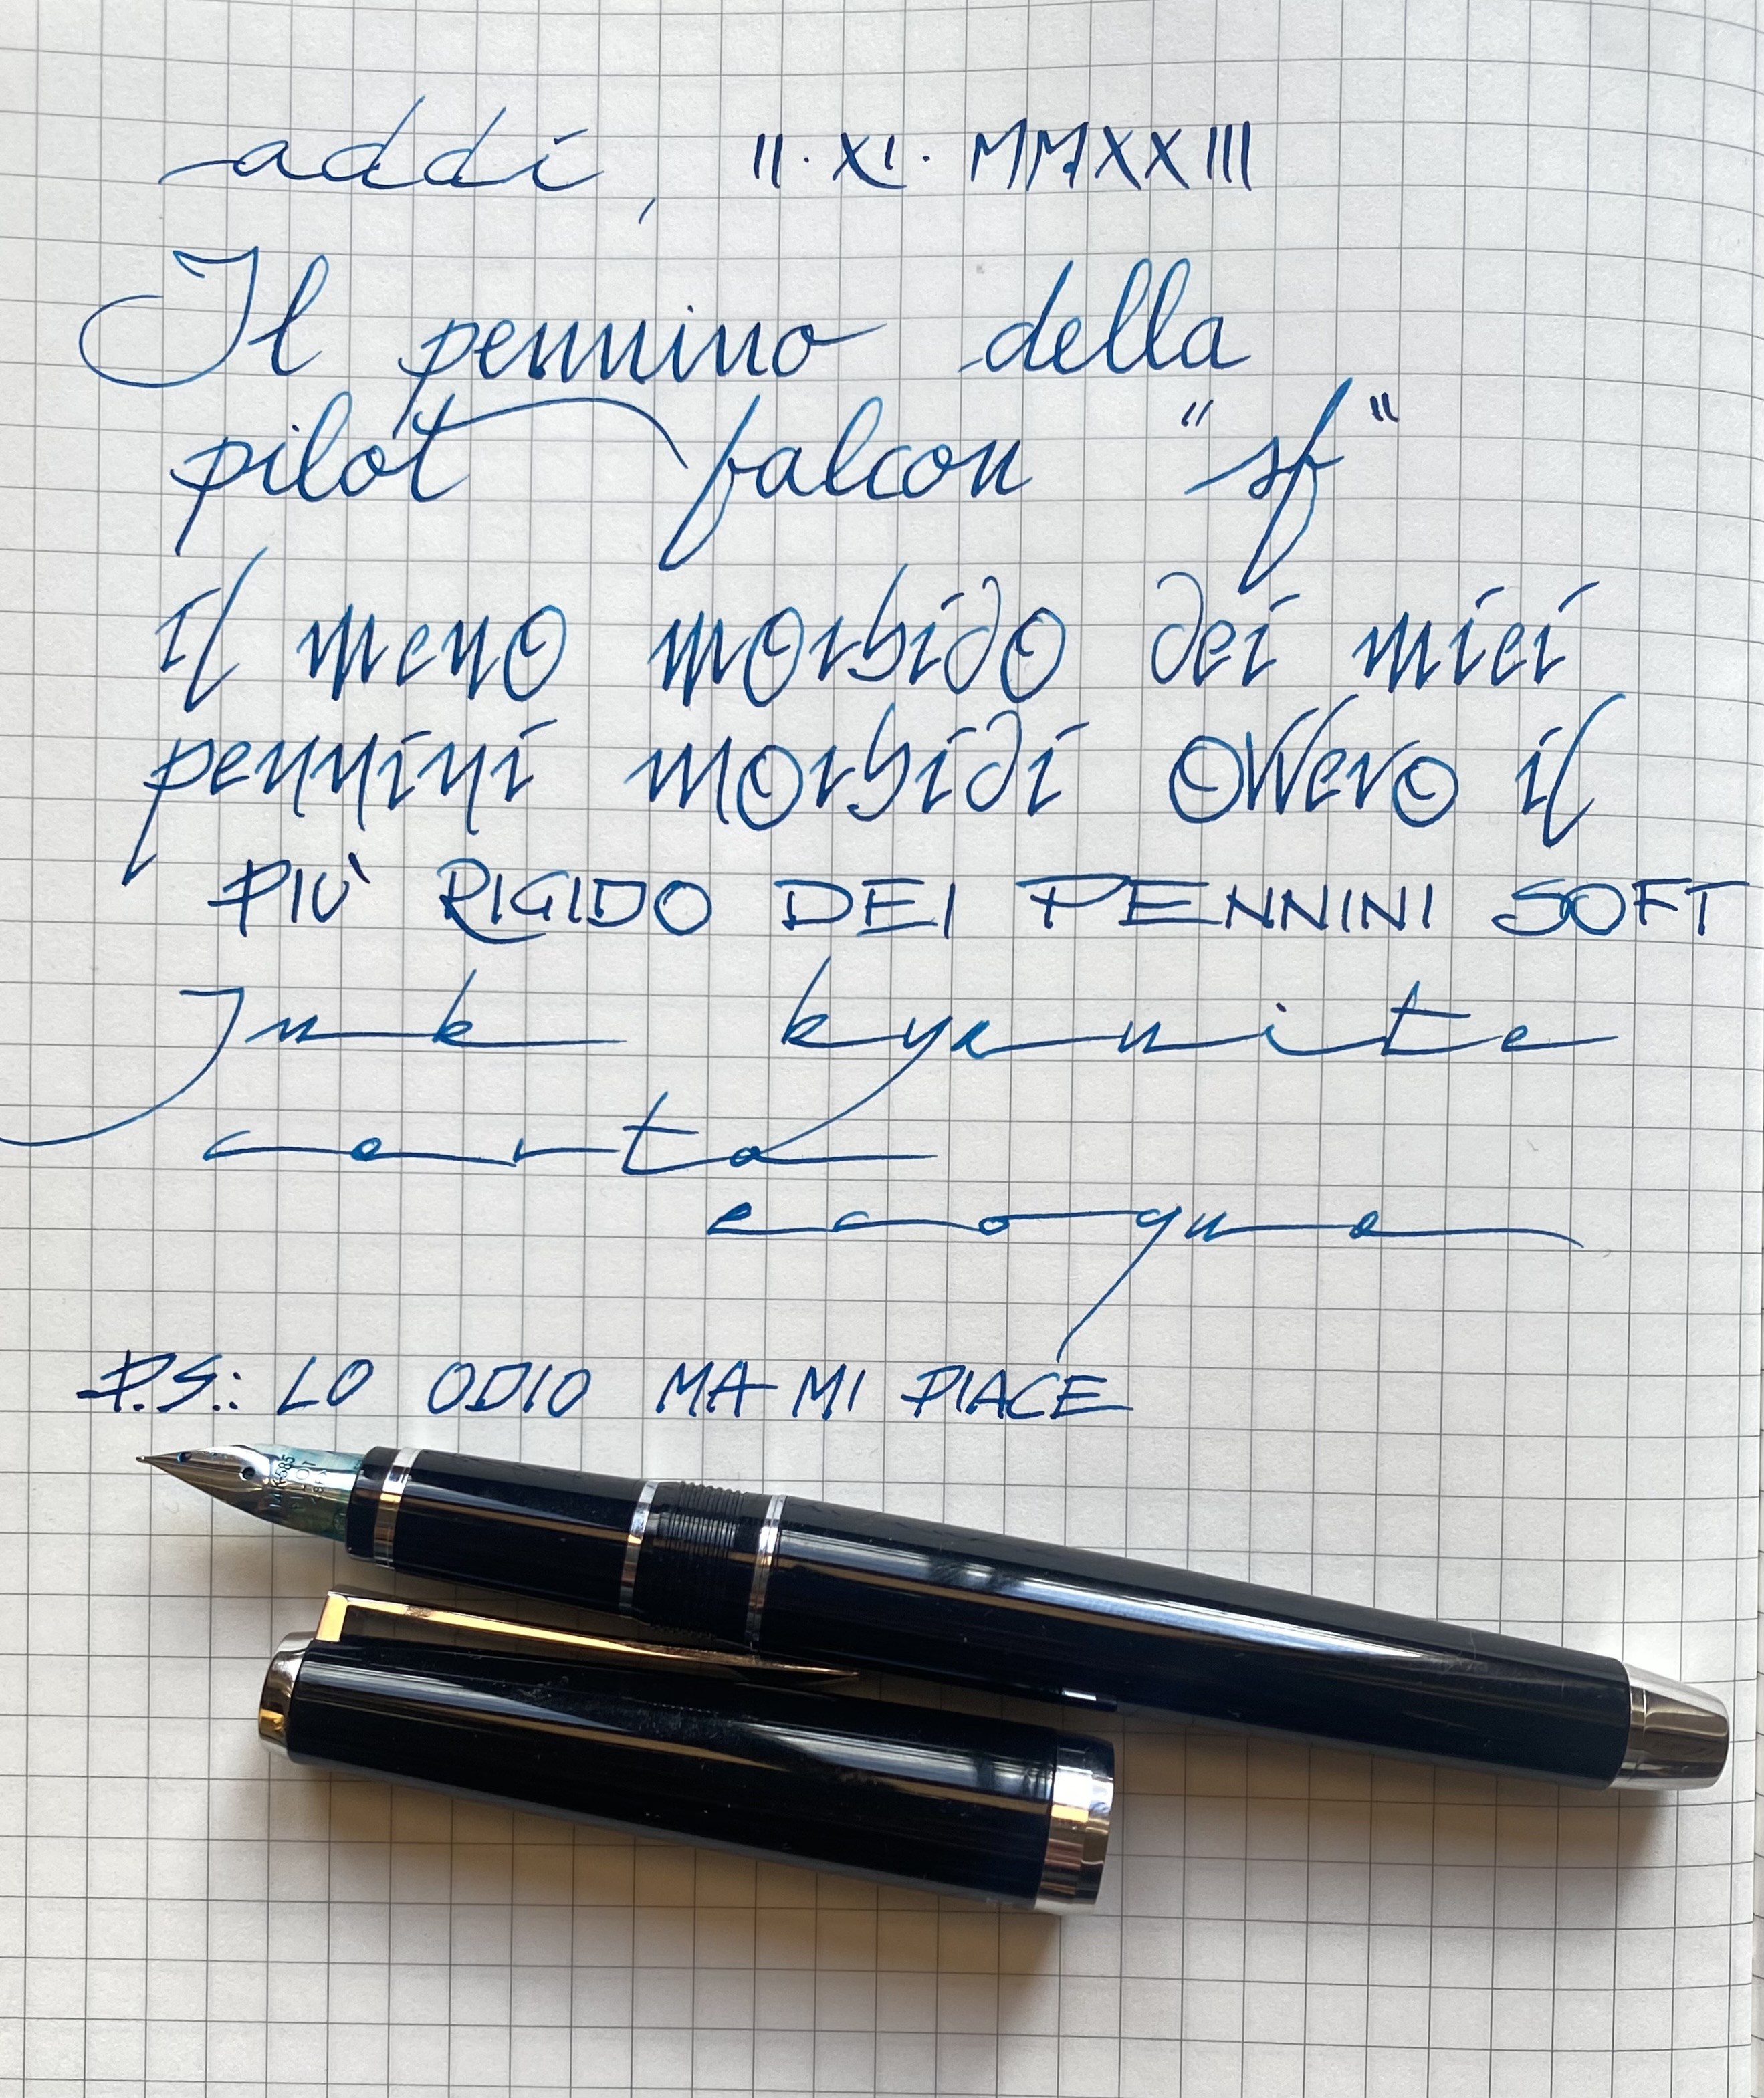 addì, II·XI·MMXXIII
Il pennino della
pilot falcon "sf"
il meno morbido dei miei
pennini morbidi ovvero il
PIÙ RIGIDO DEI PENNINI SOFT
Ink kyanite
carta
ecoqua
P.S.: LO ODIO MA MI PIACE
14K-585
PILOT